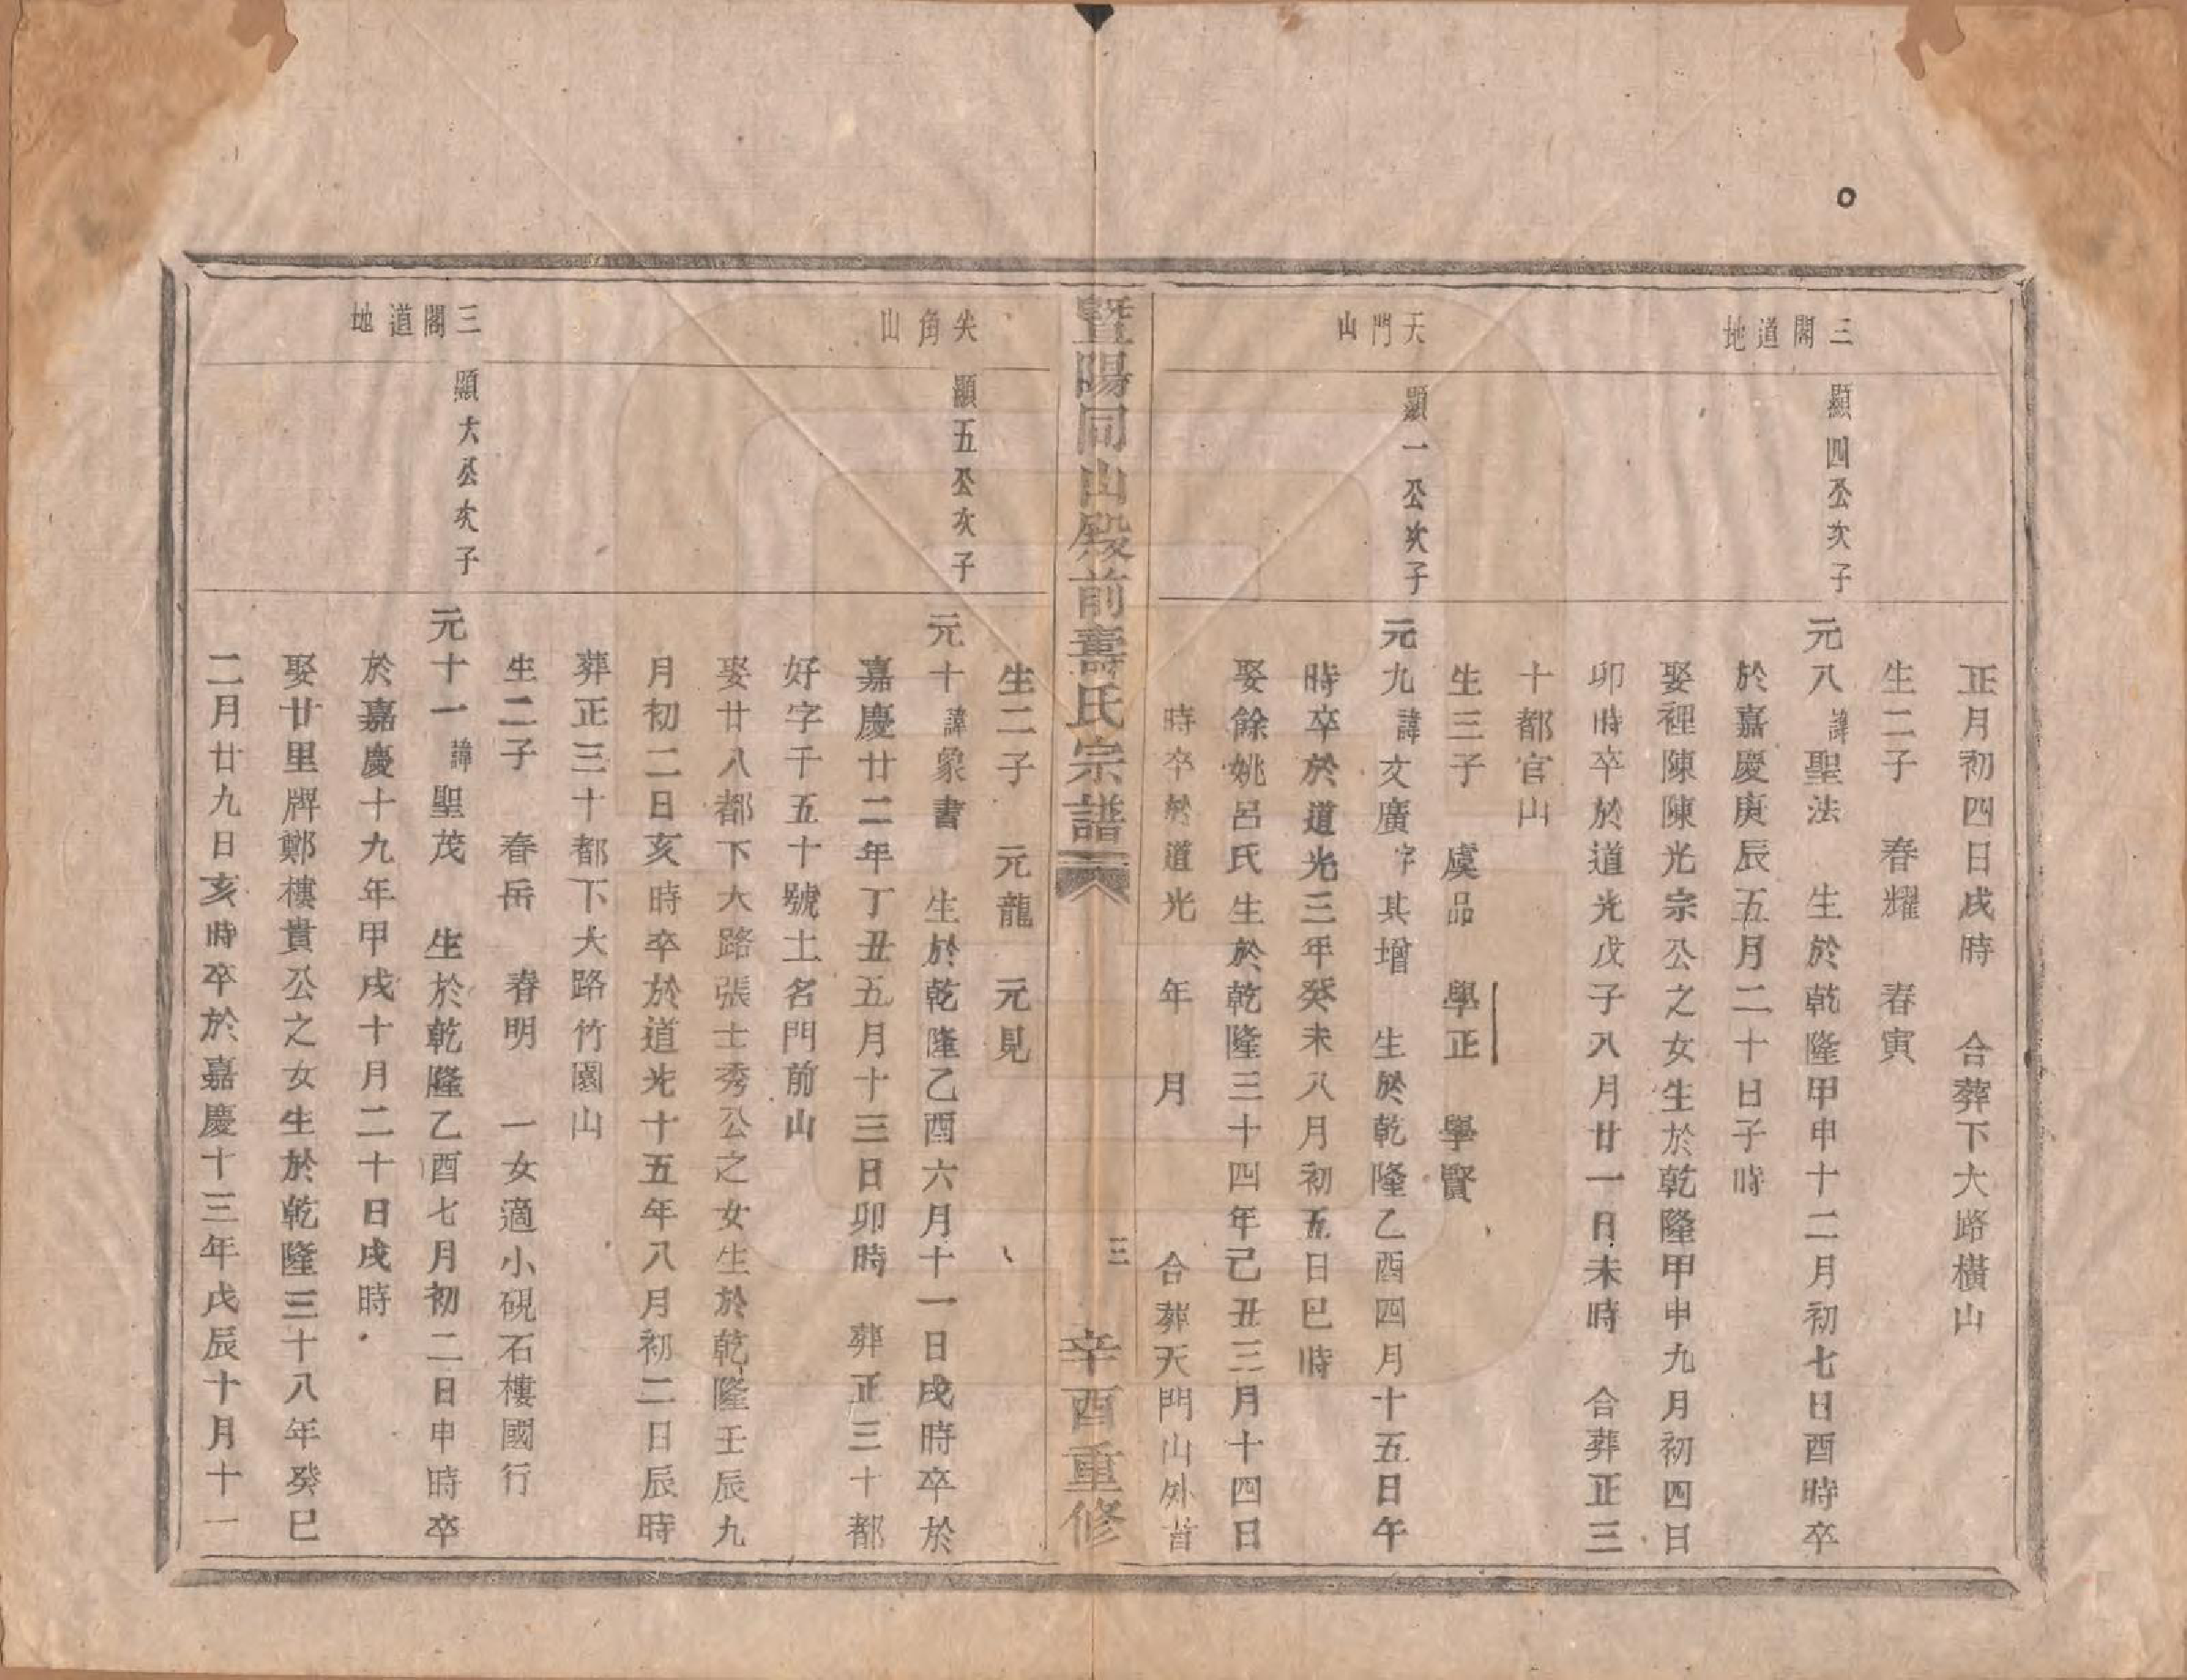 三閣道地
天門山
正月初四日戌時　合葬下大路橫山
生二子　春耀　春寅
顯四公次子
元八諱聖法　生於乾隆甲申十二月初七日酉時卒
於嘉慶庚辰五月二十日子時
娶裡陳陳光宗公之女生於乾隆甲申九月初四日
卯時卒於道光戊子八月廿一日未時　合葬正三
十都官山
生三子　虞品　學正　學賢
顯一公次子
元九諱文廣字其增　生於乾隆乙酉四月十五日午
時卒於道光三年癸未八月初五日巳時
娶餘姚呂氏生於乾隆三十四年己丑三月十四日
時卒於道光　年　月　合葬天門山外首
暨陽同山殿前壽氏宗譜　三　辛酉重修
尖角山
三閣道地
生二子　元龍　元見
顯五公次子
元十諱象書　生於乾隆乙酉六月十一日戌時卒於
嘉慶廿二年丁丑五月十三日卯時　葬正三十都
好字千五十號土名門前山
娶廿八都下大路張士秀公之女生於乾隆壬辰九
月初二日亥時卒於道光十五年八月初二日辰時
葬正三十都下大路竹園山
生二子　春岳　春明　一女適小硯石樓國行
顯大公次子
元十一諱聖茂　生於乾隆乙酉七月初二日申時卒
於嘉慶十九年甲戌十月二十日戌時
娶廿里牌鄭樓貴公之女生於乾隆三十八年癸巳
二月廿九日亥時卒於嘉慶十三年戊辰十月十一